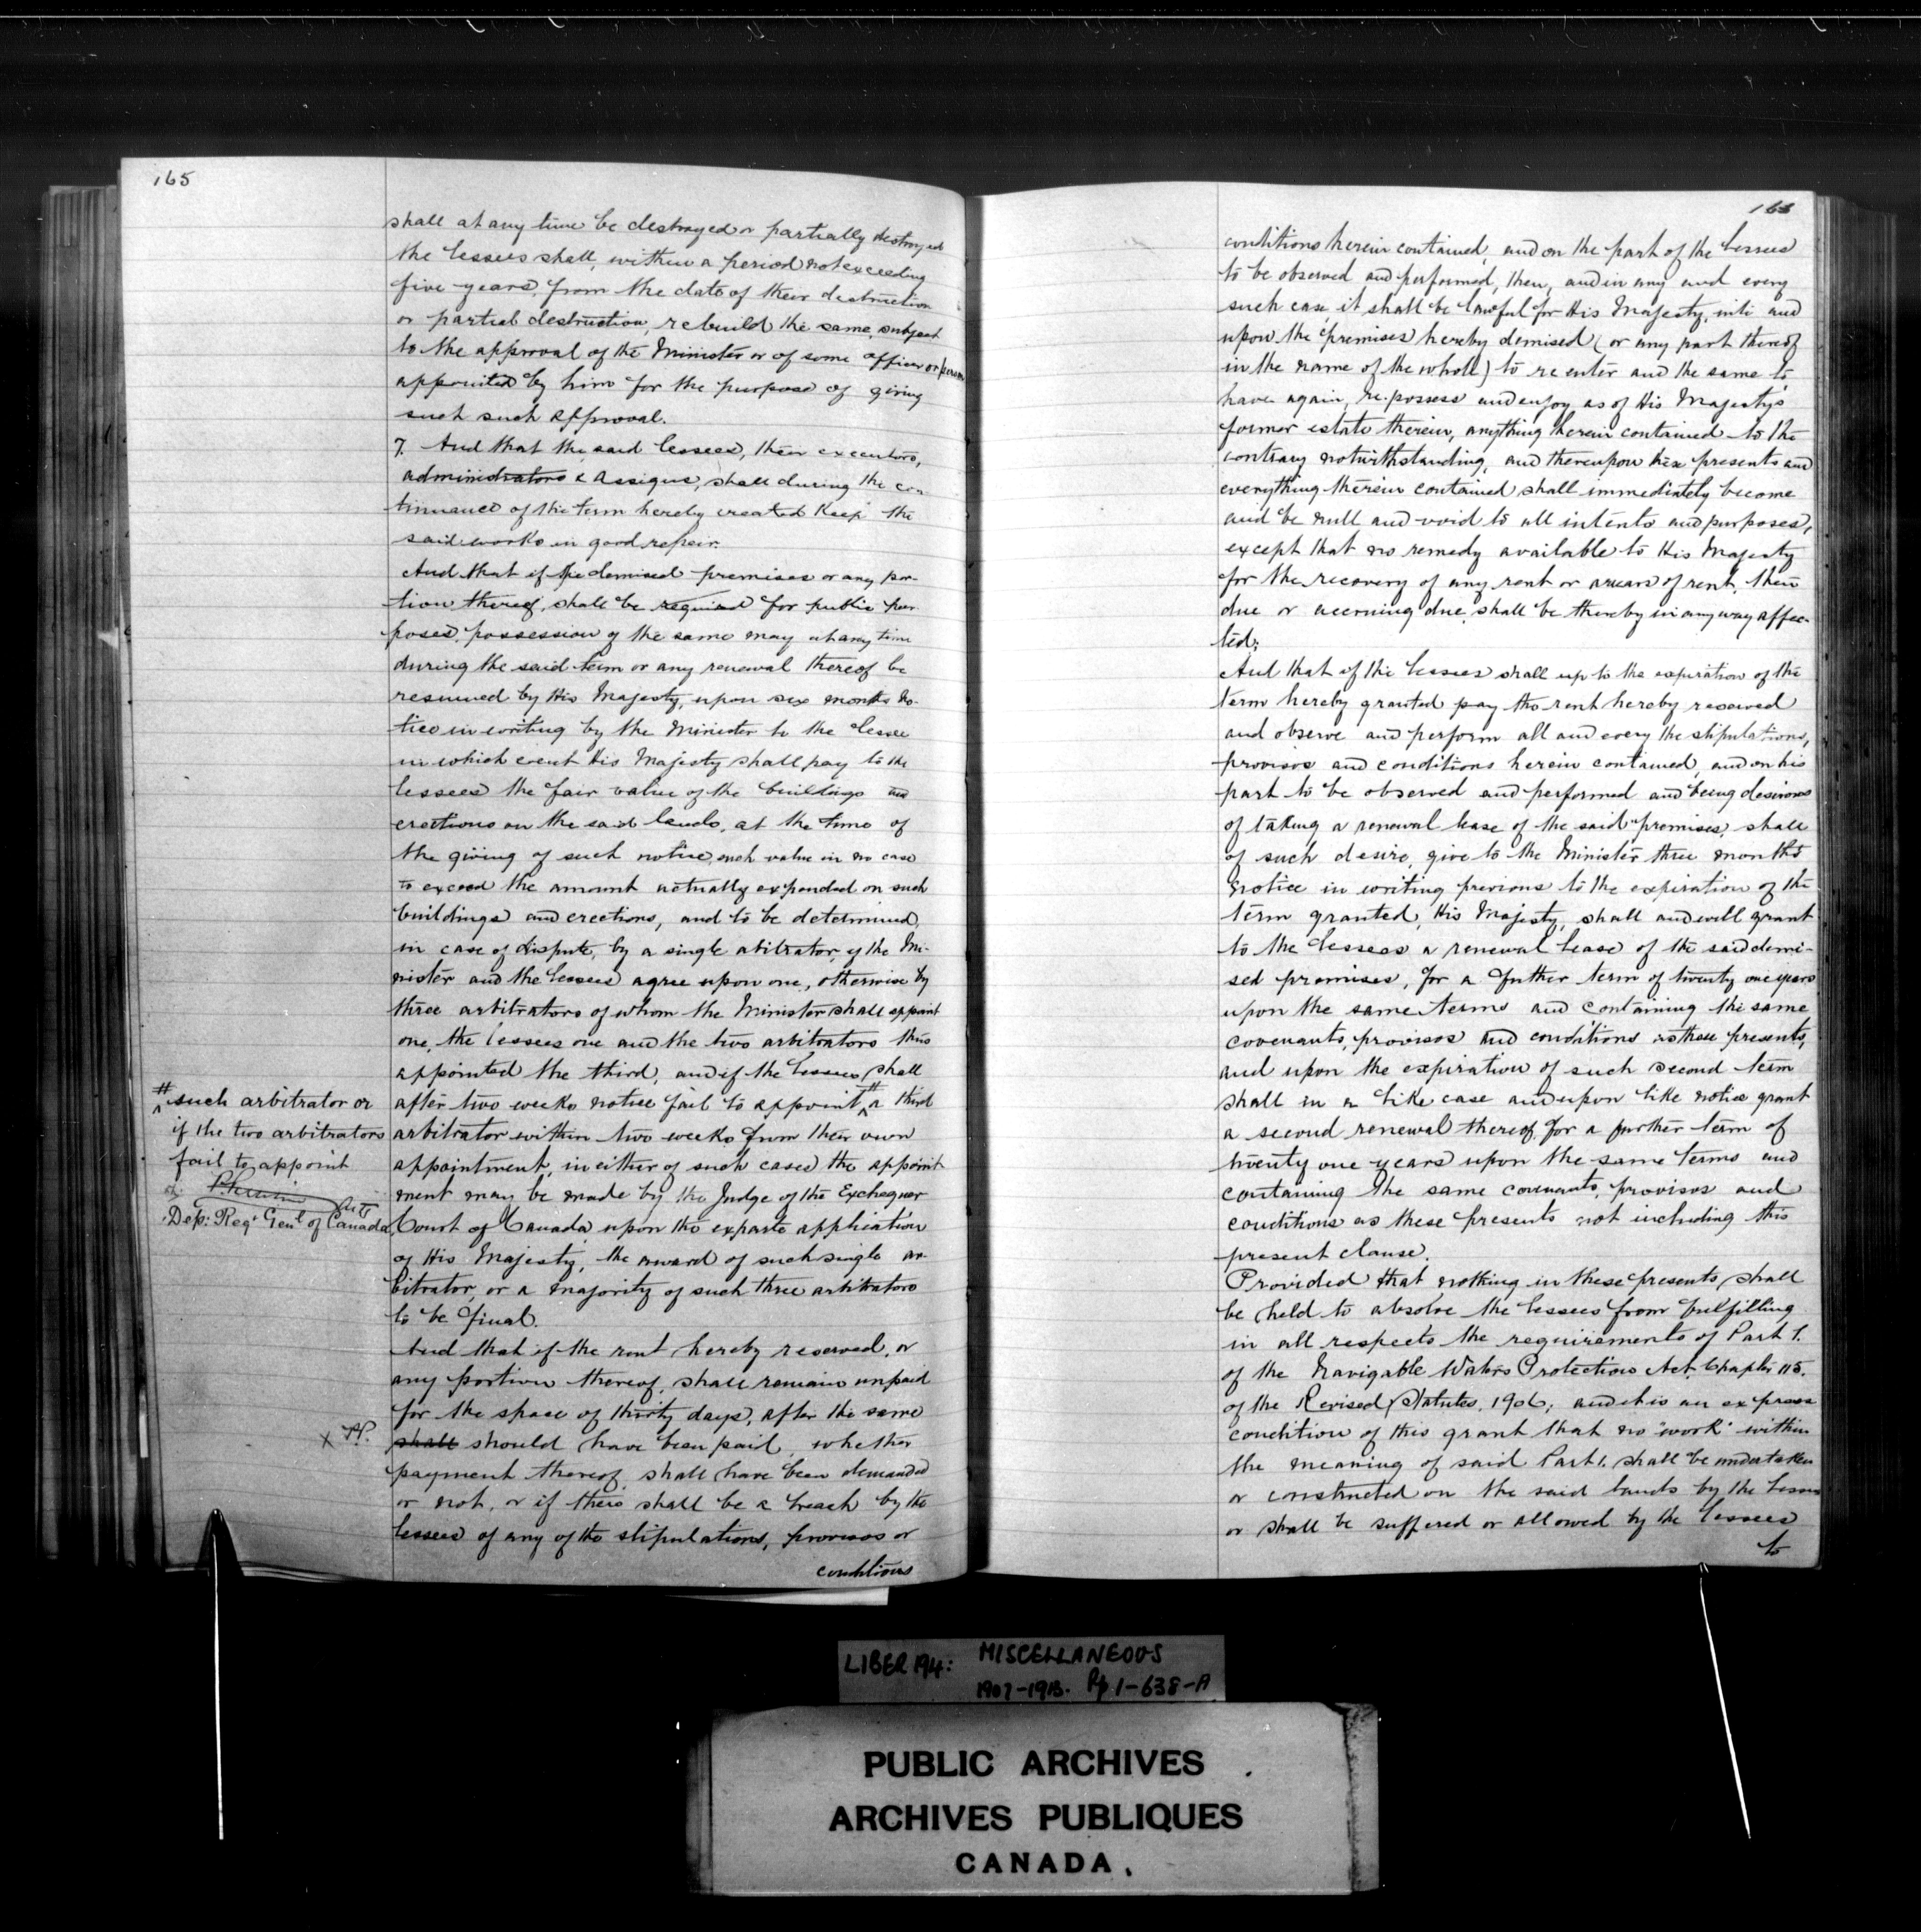 165
shall at any time be destroyed or partially destroyed
the lessees shall, within a period not exceeding
five years, from the date of their destruction
or partial destruction, rebuild the same, subject
to the approval of the Minister or of some officer or person
appointed by him for the purpose of giving
such such approval.
7. And that the said lessees, their executors,
administrators & assigns, shall during the con-
tinuance of the term hereby created keep the
said works in good repair.
And that if the demised premises or any por-
tion thereof, shall be required for public pur-
poses, possession of the same may at any time
during the said term or any renewal thereof be
resumed by His Majesty, upon six months no-
tice in writing by the Minister to the lessee
in which event His Majesty shall pay to the
lessees the fair value of the buildings and
erections on the said lands, at the time of
the giving of such notice, such value in no case
to exceed the amount actually expended on such
buildings and erections, and to be determined,
in case of dispute, by a single abitrator, if the Mi-
nister and the lessees agree upon one, otherwise by
three arbitrators of whom the Minister shall appoint
one, the lessees one and the two arbitrators thus
appointed the third, and if the lessees shall
after two weeks notice fail to appoint # a third
arbitrator within two weeks from their own
appointment, in either of such cases the appoint
ment may be made by the Judge of the Exchequer
Court of Canada, upon the exparte application
of His Majesty, the award of such single ar-
bitrator, or a majority of such three arbitrators
to be final.
And that if the rent hereby reserved, or
any portion thereof, shall remain unpaid
for the space of thirty days, after the same
shall should have been paid, whether
payment thereof shall have been demanded
or not, or if there shall be a breach by the
lessees of any of the stipulations, provisos or
conditions
# such arbitrator or
if the two arbitrators
fail to appoint
Dep: Regr Genl of Canada
X
conditions herein contained, and on the part of the lessees
to be observed and performed, then, and in any and every
such case, it shall be lawful for His Majesty, into and
upon the premises hereby demised (or any part thereof
in the name of the whole) to re enter and the same to
have again, re-possess and enjoy as of His Majesty's
former estate therein, anything herein contained to the
contrary notwithstanding, and thereupon these presents and
everything therein contained shall immediately become
and be null and void to all intents and purposes,
except that no remedy available to His Majesty
for the recovery of any rent or arrears of rent, then
due or accruing due, shall be thereby in any way affec-
ted;
And that if the lessees shall up to the expiration of the
term hereby granted pay the rent hereby reserved
and observe and perform all and every the stipulations,
provisos and conditions herein contained, and on his
part to be observed and performed and being desirous
of taking a renewal lease of the said premises, shall
of such desire, give to the Minister three months
notice in writing previous to the expiration of the
term granted, His Majesty, shall and will grant
to the lessees a renewal lease of the said demi-
sed premises, for a further term of twenty one years
upon the same terms and containing the same
covenants, provisos and conditions as these presents,
and upon the expiration of such second term
shall in a like case and upon like notice grant
a second renewal thereof, for a further term of
twenty one years upon the same terms and
containing the same covenants, provisos and
conditions as these presents not including this
present clause.
Provided that nothing in these presents shall
be held to absolve the lessees from fulfilling
in all respects the requirements of Part 1.
of the Navigable Waters Protection Act, Chapter 115.
of the Revised Statutes, 1906; and it is an express
condition of this grant that no "work" within
the meaning of said Part 1. shall be undertaken
or constructed on the said lands by the lessees
or shall be suffered or allowed by the lessees
to
LIBER 194: MISCELLANEOUS
1907-1913. Pp 1-638-A
PUBLIC ARCHIVES
ARCHIVES PUBLIQUES
CANADA.